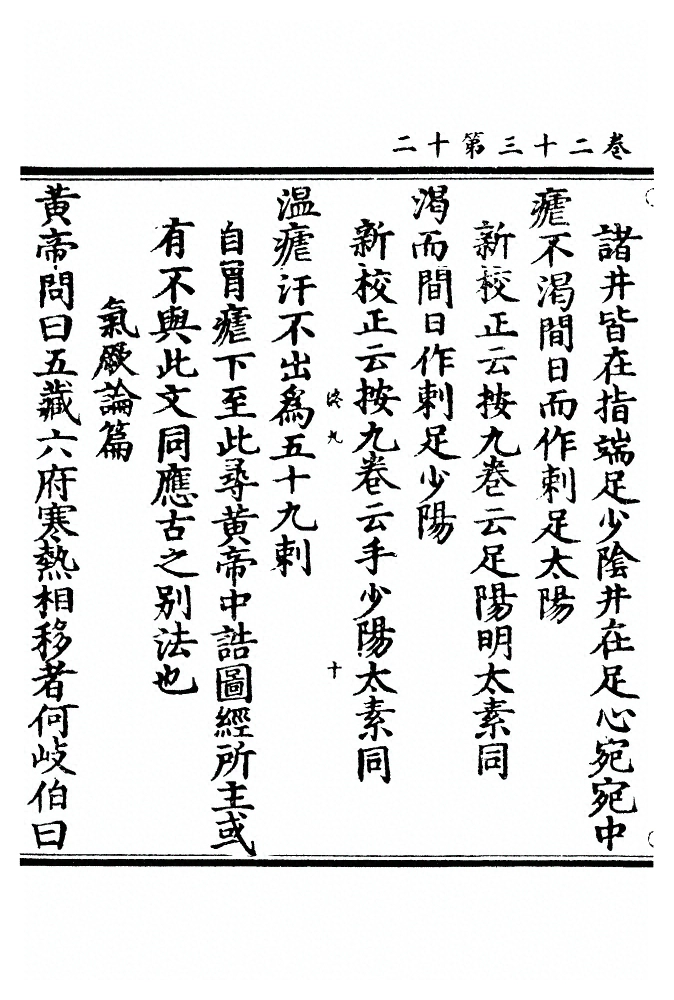 二十第三十二卷
諸井皆在指端足少陰井在足心宛宛中
瘧不渴間日而作刺足太陽
新校正云按九卷云足陽明太素同
渴而間日作刺足少陽
新校正云按九卷云手少陽太素同
终九
十
温瘧汗不出爲五十九刺
自胃瘧下至此尋黄帝中誥圖經所主或
有不與此文同應古之别法也
氣厥論篇
黄帝問曰五藏六府寒熱相移者何岐伯曰